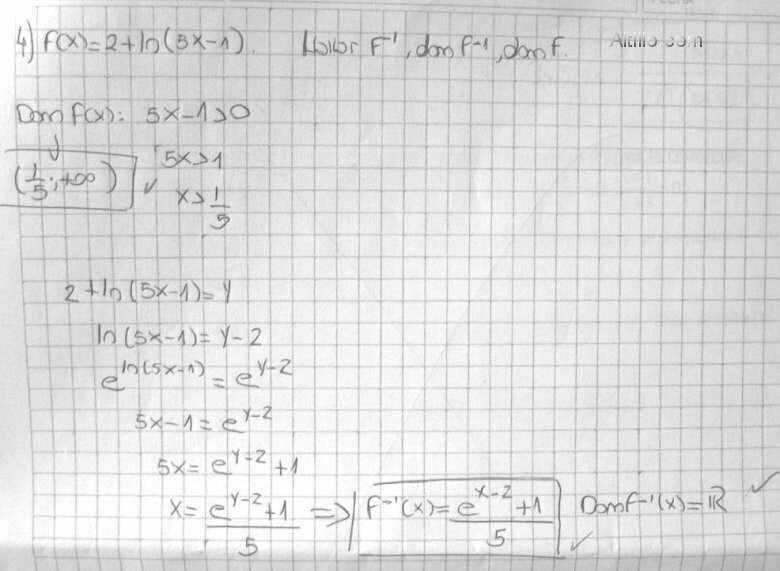 4) f(x)=2+ln(5x-1). Hallar F⁻¹, dom f⁻¹, dom f.
Dom f(x): 5x-1>0
5x>1
(1/5; +∞) ✓ x>1/5
2+ln(5x-1)=y
ln(5x-1)=y-2
e^ln(5x-1) = e^y-2
5x-1=e^y-2
5x=e^y-2+1
x=e^y-2+1/5 ⇒ F⁻¹(x)=e^x-2+1/5 ✓ Dom f⁻¹(x)=ℝ ✓